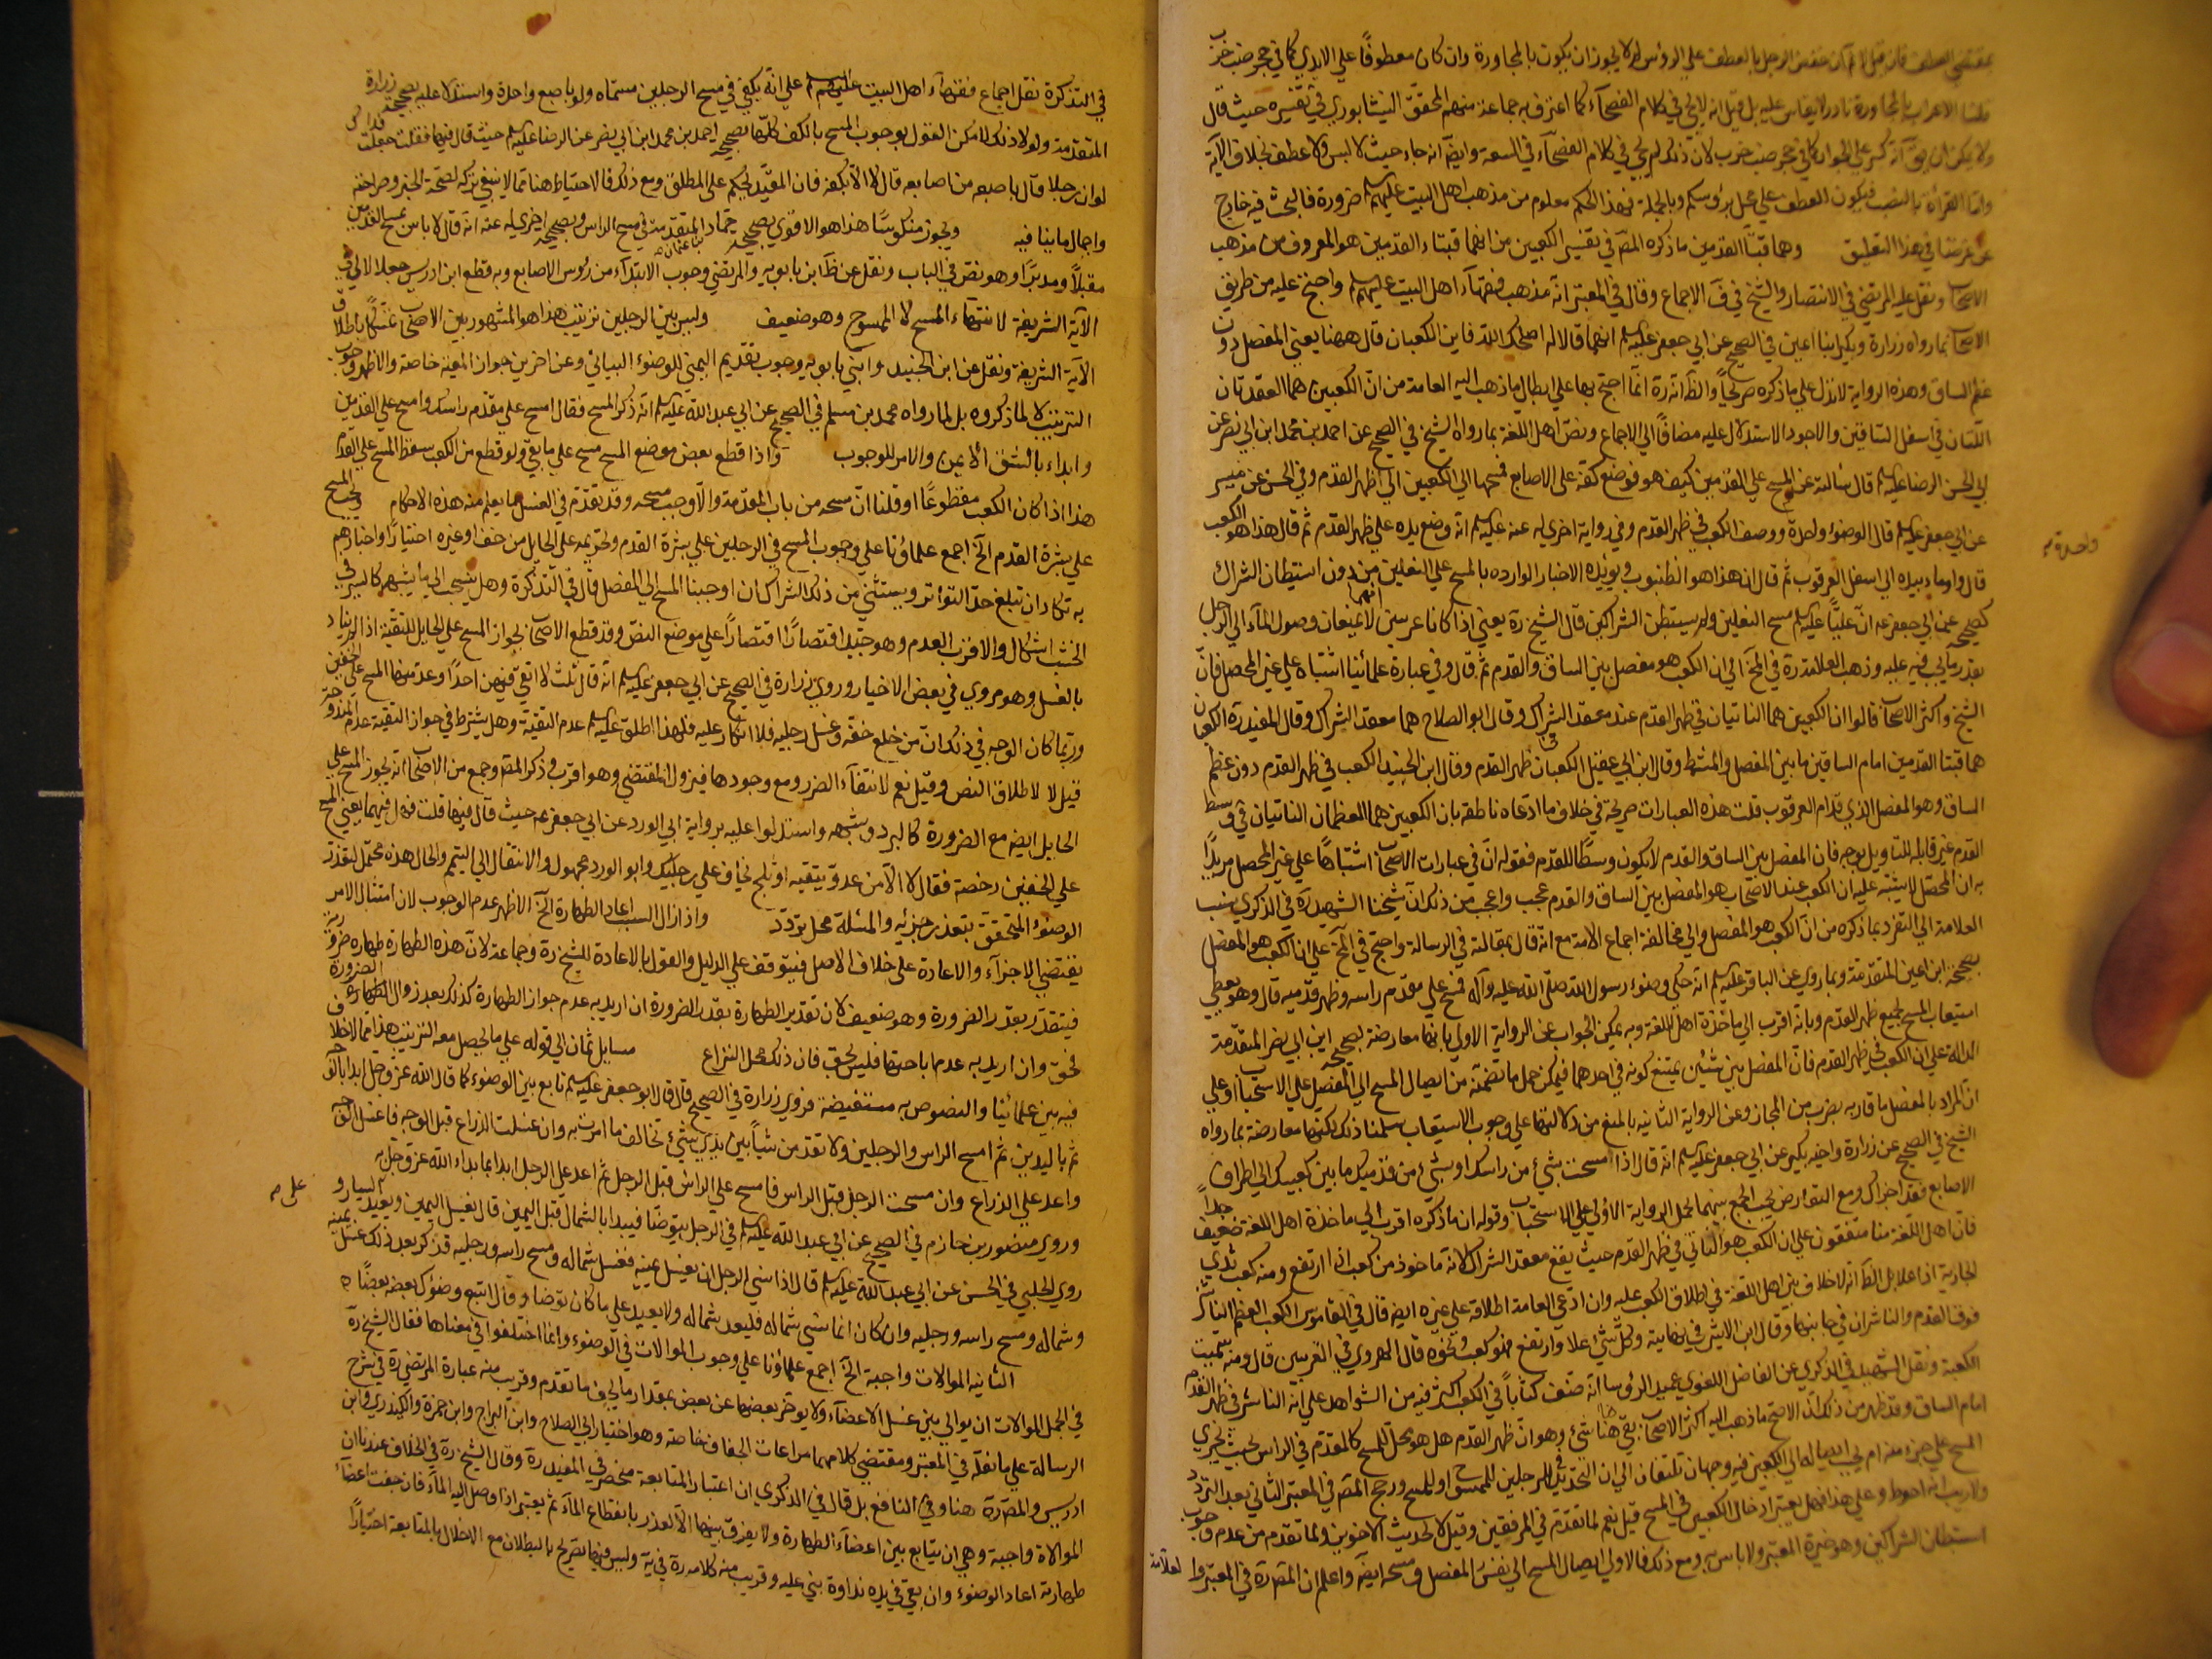 بمقتضى العطف فان قيل لم لا يكون خفض الارجل بالعطف على الرؤس لم لا يجوز ان يكون بالمجاورة وان كان معطوفًا على الايدي كما في جحر ضب خرب
قلنا الاعراب بالمجاورة نادر لا يقاس عليه بل قيل انه لم يجئ في كلام الفصحاء كما اعترف به جماعة منهم المحقق النيشابوري في تفسيره حيث قال
ولا يمكن ان يق انه كسر على الجوار كما في جحر ضب خرب لان ذلك لم يجئ في كلام الفصحاء في السعة وايضا انه جاء حيث لا لبس ولا عطف بخلاف الآية
واما القرأة بالنصب فيكون العطف على محل برؤسكم وبالجملة فهذا الحكم معلوم من مذهب اهل البيت عليهم السلم ضرورة فالبحث فيه خارج
عن غرضنا في هذا التعليق وهما قبتا القدمين ما ذكره المص في تفسير الكعبين من انهما قبتا القدمين هو المعروف من مذهب
الاصحاب ونقل عليه المرتضى في الانتصار والشيخ في ف الاجماع وقال في المعتبر انه مذهب فقهاء اهل البيت عليهم السلم واحتج عليه من طريق
الاصحاب بما رواه زرارة وبكير ابنا اعين في الصحيح عن ابي جعفر عليه السلم انهما قالا له اصلحك الله فاين الكعبان قال ههنا يعني المفصل دون
عظم الساق وهذه الرواية لا تدل على ما ذكره صريحًا والظ انه ره انما احتج بها على ابطال ما ذهب اليه العامة من ان الكعبين هما العقدتان
اللتان في اسفل الساقين والاجود الاستدلال عليه مضافًا الى الاجماع ونص اهل اللغة بما رواه الشيخ في الصحيح عن احمد بن محمد ابن ابي نصر عن
ابي الحسن الرضا عليه السلم قال سألته عن المسح على القدمين كيف هو فوضع كفه على الاصابع فمسحها الى الكعبين الى ظهر القدم وفي الحسن عن ميسر
عن ابي جعفر عليه السلم قال الوضوء واحدة ووصف الكعب في ظهر القدم وفي رواية اخرى له عنه عليه السلم انه وضع يده على ظهر القدم ثم قال هذا هو الكعب
واحدة
قال واومأ بيده الى اسفل العرقوب ثم قال ان هذا هو الظنبوب ويؤيده الاخبار الوارده بالمسح على النعلين من دون استبطان الشراك
كصحيحة عن ابي جعفر عم ان عليًا عليه السلم مسح النعلين ولم يستبطن الشراكين قال الشيخ ره يعني اذا كانا عربيين لانهما لا يمنعان وصول الماء الى الرجل
بقدر ما يجب فيه عليه وذهب العلامة ره في لخ الى ان الكعب هو مفصل بين الساق والقدم ثم قال وفي عبارة علمائنا اشتباه على غير المحصل فان
الشيخ واكثر الاصحاب قالوا ان الكعبين هما الناتيان في ظهر القدم عند معقد الشراك وقال ابو الصلاح هما معقد الشراك وقال المفيد ره الكعبان
هما قبتا القدمين امام الساقين ما بين المفصل والمشط وقال ابن ابي عقيل الكعبان ظهر القدم وقال ابن الجنيد الكعب في ظهر القدم دون عظم
الساق وهو المفصل الذي قدام العرقوب قلت هذه العبارات صريحة في خلاف ما ادعاه ناطقه بان الكعبين هما العظمان الناتيان في وسط
القدم غير قابلة للتاويل بوجه فان المفصل بين الساق والقدم لا يكون وسطًا للقدم فقوله ان في عبارات الاصحاب اشتباهًا على غير المحصل مريدًا
به ان المحصل لا يشتبه عليه ان الكعب عند الاصحاب هو المفصل بين الساق والقدم عجب واعجب من ذلك ان شيخنا الشهيد ره في الذكرى نسب
العلامة الى التفرد بما ذكره من ان الكعب هو المفصل والى مخالفة اجماع الامة مع انه قال بمقالته في الرسالة واحتج في لخ على ان الكعب هو المفصل
بصحيحة ابن اعين المتقدمة وبما روي عن الباقر عليه السلم انه حكى وضوء رسول الله صلى الله عليه وآله فمسح على مقدم راسه وظهر قدميه قال وهو يعطي
استيعاب المسح لجميع ظهر القدم وبانه اقرب الى ما حدده اهل اللغة وبه يمكن الجواب عن الرواية الاولى بانها معارضة بصحيحة ابن ابي نصر المتقدمة
الدالة على ان الكعب في ظهر القدم فان المفصل بين شيئين يمتنع كونه في احدهما فيمكن حمل ما تضمنه من ايصال المسح الى المفصل على الاستحباب او على
ان المراد بالمفصل ما قاربه بضرب من المجاز وعن الرواية الثانية بالمنع من دلالتها على وجوب الاستيعاب سلمنا ذلك لكنها معارضة بما رواه
الشيخ في الصحيح عن زرارة واخيه بكير عن ابي جعفر عليه السلم انه قال اذا مسحت بشئ من راسك او بشئ من قدميك ما بين كعبيك الى اطراف
الاصابع فقد اجزاك ومع التعارض يجب الجمع بينهما بحمل الرواية الاولى على الاستحباب وقوله ان ما ذكره اقرب الى ما حدده اهل اللغة ضعيف جدًا
فان اهل اللغة منا متفقون على ان الكعب هو الناتي في ظهر القدم حيث يقع معقد الشراك لانه ماخوذ من كعب اذا ارتفع ومنه كعب ثدي
الجارية اذا علا بل الظ انه لا خلاف بين اهل اللغة في اطلاق الكعب عليه وان ادعى العامة اطلاقه على غيره ايضا قال في القاموس الكعب العظم الناشز
فوق القدم والناشزان في جانبيها وقال ابن الاثير في نهايته وكل شئ علا وارتفع فهو كعب ونحوه قال الهروي في الغريبين قال ومنه سميت
الكعبة ونقل الشهيد في الذكرى عن الفاضل اللغوي عميد الرؤسا انه صنف كتابًا في الكعب اكثر فيه من الشواهد على انه الناشز في ظهر القدم
امام الساق وقد ظهر من ذلك ان الاصح ما ذهب اليه اكثر الاصحاب بقي هنا شئ وهو ان ظهر القدم هل هو محل للمسح كالمقدم في الراس بحيث يجزي
المسح على جزء منه ام يجب ايصاله الى الكعبين فيه وجهان يلتفتان الى ان التحديد في الرجلين للممسوح او للمسح ورجح المص في المعتبر الثاني بعد التردد
ولا ريب انه احوط وعلى هذا فهل يعتبر ادخال الكعبين في المسح قيل نعم لما تقدم في المرفقين وقيل لا لحديث الاخوين ولما تقدم من عدم وجوب
استبطان الشراكين وهو خيرة المعتبر ولا باس به ومع ذلك فالاولى ايصال المسح الى نفس المفصل ومسحه ايضا واعلم ان المص ره في المعتبر والعلامة
في التذكرة نقل اجماع فقهاء اهل البيت عليهم السلم على انه يكفي في مسح الرجلين مسماه ولو باصبع واحدة واستدلا عليه بصحيحة زرارة
المتقدمة ولولا ذلك لامكن القول بوجوب المسح بالكف كلها لصحيحة احمد بن محمد ابن ابي نصر عن الرضا عليه السلم حيث قال فيها فقلت جعلت فداك
لو ان رجلا قال باصبعين من اصابعه قال لا الا بكفه فان المقيد يحكم على المطلق ومع ذلك فالاحتياط هنا مما لا ينبغي تركه لصحة الخبر وصراحته
واجمال ما ينافيه ويجوز منكوسًا هذا هو الاقوى لصحيحة حماد بن عثمان المتقدمة في مسح الراس وبصحيحة اخرى له عنه انه قال لا باس بمسح القدمين
مقبلًا ومدبرًا وهو نص في الباب ونقل عن ظ ابن بابويه والمرتضى وجوب الابتداء من رؤس الاصابع وبه قطع ابن ادريس جعلا لالى في
الآية الشريفة لانتهاء المسح لا الممسوح وهو ضعيف وليس بين الرجلين ترتيب هذا هو المشهور بين الاصحاب تمسكًا باطلاق
الآية الشريفة ونقل عن ابن الجنيد وابني بابويه وجوب تقديم اليمنى للوضوء البياني وعن اخرين جواز المعية خاصة والاظهر وجوب
الترتيب لا لما ذكروه بل لما رواه محمد بن مسلم في الصحيح عن ابي عبد الله عليه السلم انه ذكر المسح فقال امسح على مقدم راسك وامسح على القدمين
وابداء بالشق الأيمن والامر للوجوب واذا قطع بعض موضع المسح مسح على ما بقي ولو قطع من الكعب سقط المسح على القدم
هذا اذا كان الكعب مقطوعًا او قلنا ان مسحه من باب المقدمة والا وجب مسحه وقد تقدم في الغسل ما يعلم منه هذه الاحكام ويجب المسح
على بشرة القدم الخ اجمع علماؤنا على وجوب المسح في الرجلين على بشرة القدم وتحريمه على الحايل من خف او غيره اختيارًا واخبارهم
به تكاد ان تبلغ حد التواتر ويستثنى من ذلك الشراك ان اوجبنا المسح الى المفصل قال في التذكرة وهل ينسحب الى ما يشبهه كالسير في
الخشب اشكال والاقرب العدم وهو جيد اقتصارًا على موضع النص وقد قطع الاصحاب بجواز المسح على الحايل للتقية اذا لم يتاد
بالغسل وهو مروي في بعض الاخبار وروى زرارة في الصحيح عن ابي جعفر عليه السلم انه قال ثلث لا اتقي فيهن احدًا وعد منها المسح على الخفين
وربما كان الوجه في ذلك ان من خلع خفه وغسل رجليه فلا انكار عليه فلهذا اطلق عليه السلم عدم التقية وهل يشترط في جواز التقية عدم المندوحة
قيل لا لاطلاق النص وقيل نعم لانتفاء الضرر ومع وجودها فيزول المقتضي وهو اقرب وذكر المص وجمع من الاصحاب انه يجوز المسح على
الحايل ايضا مع الضرورة كالبرد وشبهه واستدلوا عليه برواية ابي الورد عن ابي جعفر عم حيث قال فيها قلت فهل فيهما يعني المسح
على الخفين رخصة فقال لا الا من عدو تتقيه او ثلج تخاف على رجليك وابو الورد مجهول والانتقال الى التيمم والحال هذه محتمل لتعذر
الوضوء المتحقق بتعذر جزئه والمسئلة محل تردد واذا زال السبب اعاد الطهارة الخ الاظهر عدم الوجوب لان امتثال الامر
يقتضي الاجزاء والاعادة على خلاف الاصل فيتوقف على الدليل والقول بالاعادة للشيخ ره وجماعة لان هذه الطهارة طهاره ضرورية
فيتقدر بقدر الضرورة وهو ضعيف لان تقدير الطهارة بقدر الضرورة ان اريد به عدم جواز الطهارة كذلك بعد زوال الضرورة
فحق وان اريد به عدم اباحتها فليس بحق فان ذلك محل النزاع مسايل ثمان الى قوله على ما يحصل معه الترتيب هذا مما لا خلاف
فيه بين علمائنا والنصوص به مستفيضة فروى زرارة في الصحيح قال قال ابو جعفر عليه السلم تابع بين الوضوء كما قال الله عز وجل ابدا بالوجه
ثم باليدين ثم امسح الراس والرجلين ولا تقدمن شيًا بين يدي شئ تخالف ما امرت به وان غسلت الذراع قبل الوجه فاغسل الوجه
واعد على الذراع وان مسحت الرجل قبل الراس فامسح على الراس قبل الرجل ثم اعد على الرجل ابدا بما بداء الله عز وجل به
على
وروى منصور بن حازم في الصحيح عن ابي عبد الله عليه السلم في الرجل يتوضا فيبدا بالشمال قبل اليمين قال يغسل اليمين ويعيد اليسار و
روى الحلبي في الحسن عن ابي عبد الله عليه السلم قال اذا نسي الرجل ان يغسل يمينه فغسل شماله ومسح راسه ورجليه فذكر بعد ذلك غسل يمينه
وشماله ومسح راسه ورجليه وان كان انما نسي شماله فليعد شماله ولا يعيد على ما كان توضا وقال اتبع وضوءك بعضه بعضًا
الثانية الموالات واجبة الخ اجمع علماؤنا على وجوب الموالات في الوضوء وانما اختلفوا في معناها فقال الشيخ ره
في الجمل الموالات ان يوالي بين غسل الاعضاء ولا يوخر بعضها عن بعض بمقدار ما يجف ما تقدم وقريب منه عبارة المرتضى ره في شرح
الرسالة على ما نقله في المعتبر ومقتضى كلامهما مراعات الجفاف خاصة وهو اختيار ابي الصلاح وابن البراج وابن حمزة والكيدري وابن
ادريس والمص ره هنا وفي النافع بل قال في الذكرى ان اعتبار المتابعة منحصر في المفيد ره وقال الشيخ ره في الخلاف عندنا ان
الموالاة واجبة وهي ان يتابع بين اعضاء الطهارة ولا يفرق بينها الا لعذر بانقطاع الماء ثم يعتبر اذا وصل اليه الماء فان جفت اعضاء
طهارته اعاد الوضوء وان بقي في يده نداوة بنى عليه وقريب منه كلامه ره في ية وليس فيها تصريح بالبطلان مع الاخلال بالمتابعة اختيارًا